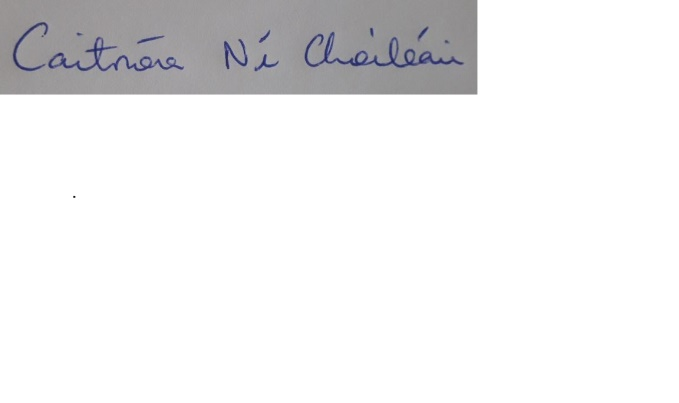 Caitríona Ní Choileáin